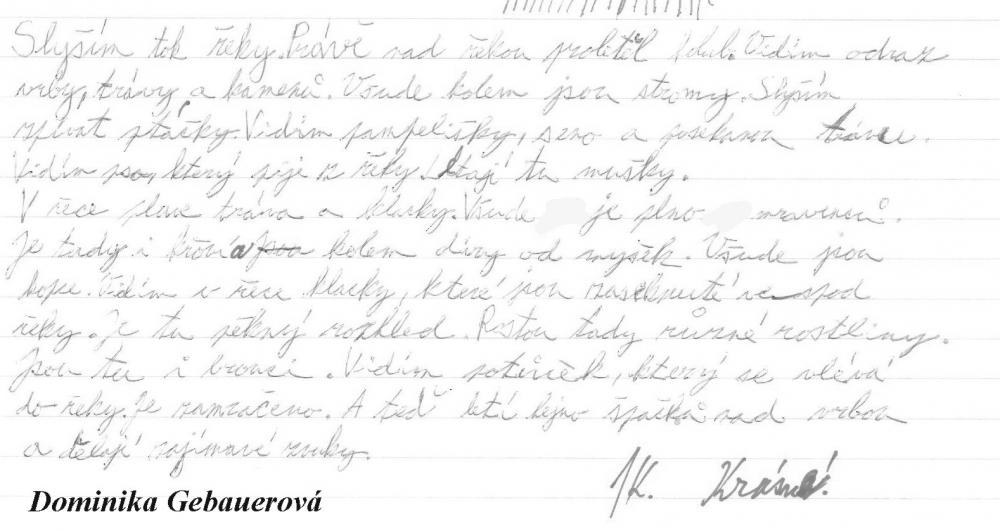 Slyším tok řeky. Právě nad řekou proletěl holub. Vidím odraz
vrby, trávy, a kamenů. Všude kolem jsou stromy. Slyším
zpívat ptáčky. Vidím pampelišky, seno a posekanou trávu.
Vidím psa, který pije z řeky. Létají tu mušky.
V řece plave tráva a klacky. Všude je plno mravenců.
Je tady i křoví a jsou kolem díry od myšek. Všude jsou
kopr. Vidím v řece klacky, které jsou zaseknuté ve spod
řeky. Je tu pěkný rozhled. Rostou tady různé rostliny.
Jsou tu i brouci. Vidím potůček, který se vlévá
do řeky. Je zamračeno. A teď letí hejno špačků nad vrbou
a dělají zajímavé zvuky.
JK. Krásné!
Dominika Gebauerová